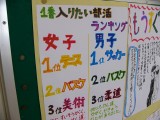 1番入りたい部活
ランキング
女子
1位 テニス
2位 バスケ
3位 美術
男子
1位 サッカー
2位 バスケ
3位 柔道